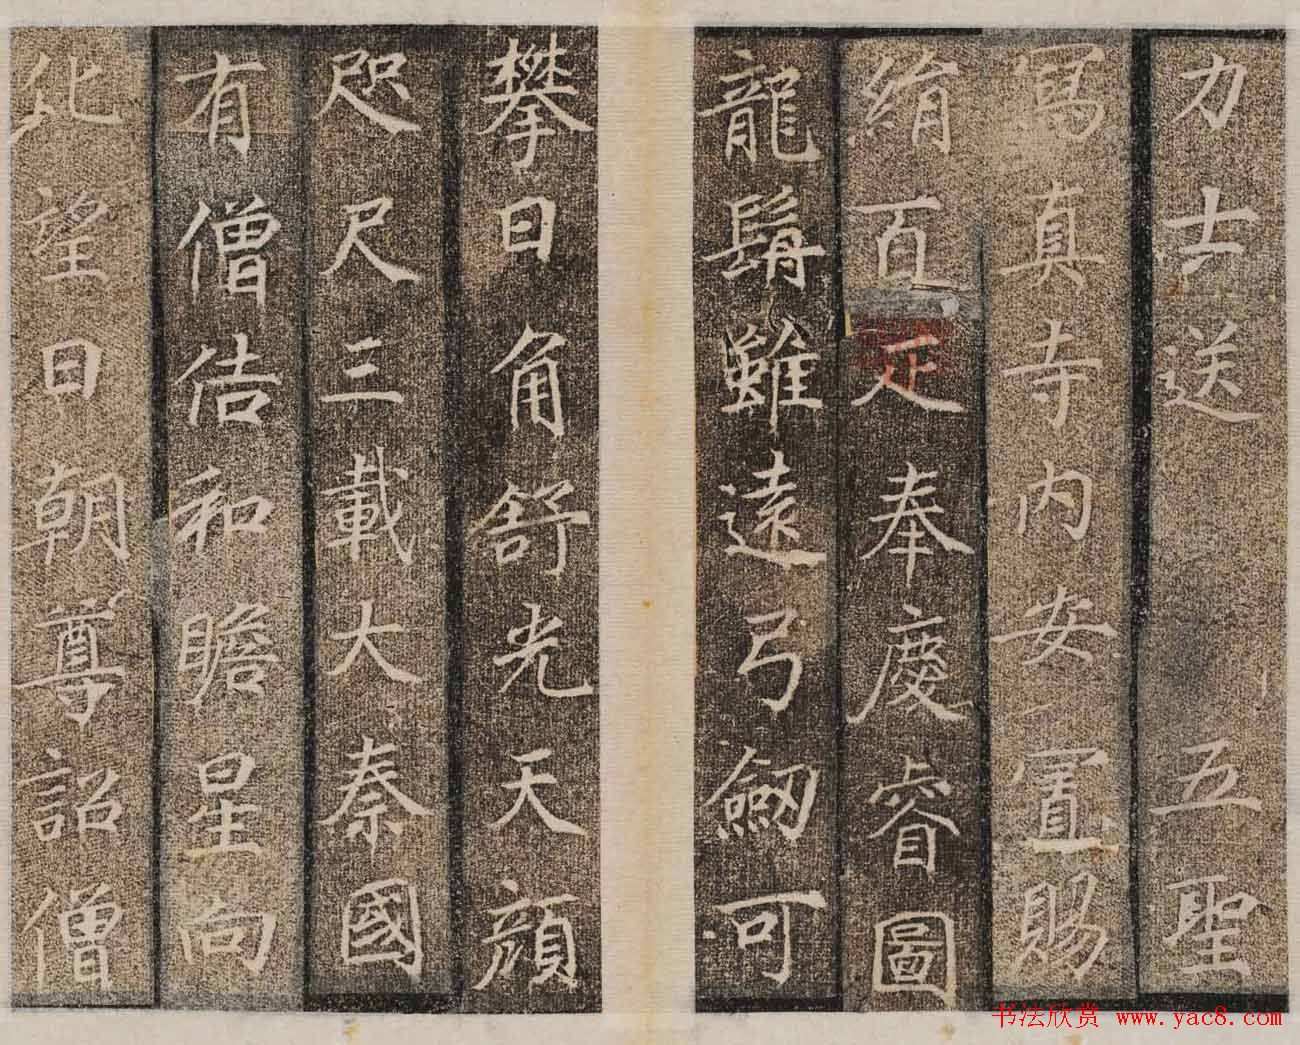 力士送五聖
寫真寺內安置賜
絹百疋奉慶睿圖
龍髯雖遠弓劒可
攀日角舒光天顏
咫尺三載大秦國
有僧佶和瞻星向
化望日朝尊詔僧
书法欣赏 www.yac8.com